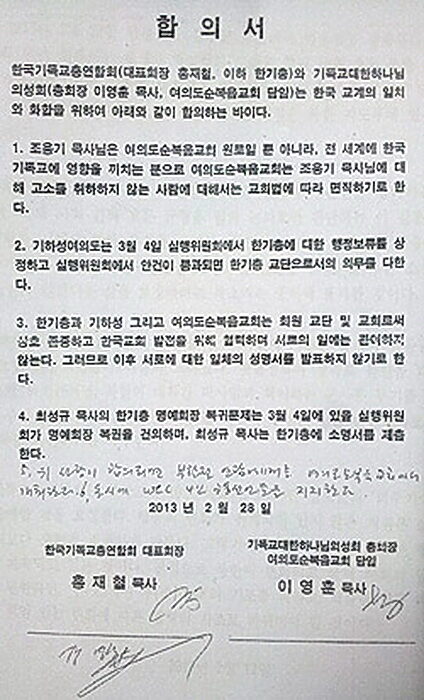 합 의 서
한국기독교총연합회(대표회장 홍재철, 이하 한기총)와 기독교대한하나님
의성회(총회장 이영훈 목사, 여의도순복음교회 담임)는 한국 교계의 일치
와 화합을 위하여 아래와 같이 합의하는 바이다.
1. 조용기 목사님은 여의도순복음교회 원로일 뿐 아니라, 전 세계에 한국
기독교에 영향을 끼치는 분으로 여의도순복음교회는 조용기 목사님에 대
해 고소를 취하하지 않는 사람에 대해서는 교회법에 따라 면직하기로 한
다.
2. 기하성여의도는 3월 4일 실행위원회에서 한기총에 대한 행정보류를 상
정하고 실행위원회에서 안건이 통과되면 한기총 교단으로서의 의무를 다한
다.
3. 한기총과 기하성 그리고 여의도순복음교회는 회원 교단 및 교회로써
상호 존중하고 한국교회 발전을 위해 협력하며 서로의 일에는 관여하지
않는다. 그러므로 이후 서로에 대한 일체의 성명서를 발표하지 않기로 한
다.
4. 최성규 목사의 한기총 명예회장 복귀문제는 3월 4일에 있을 실행위원
회가 명예회장 복권을 건의하며, 최성규 목사는 한기총에 소명서를 제출
한다.
5. 위 사항이 합의되면
WCC 지지한다
2013 년 2 월 28 일
한국기독교총연합회 대표회장
홍 재 철 목사
기독교대한하나님의성회 총회장
여의도순복음교회 담임
이 영 훈 목사